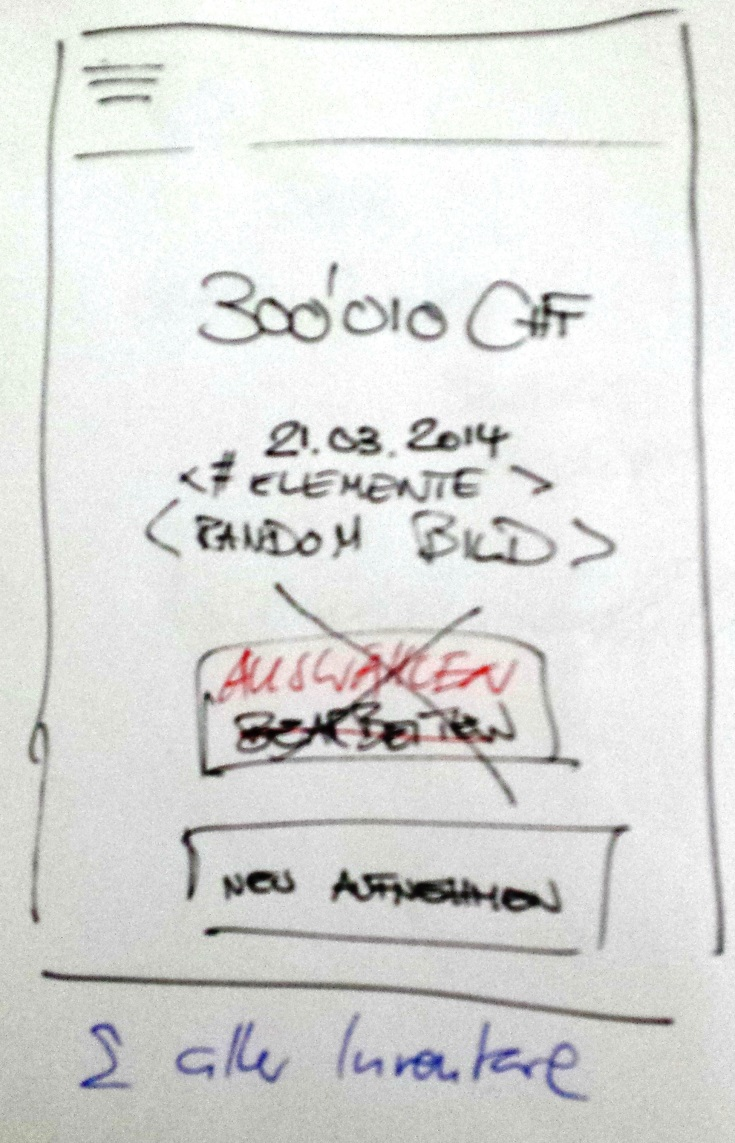 300'010 CHF
21.03.2014
<# ELEMENTE >
< RANDOM BILD >
AUSWÄHLEN
BEARBEITEN
NEU AUFNEHMEN
Σ aller Inventare